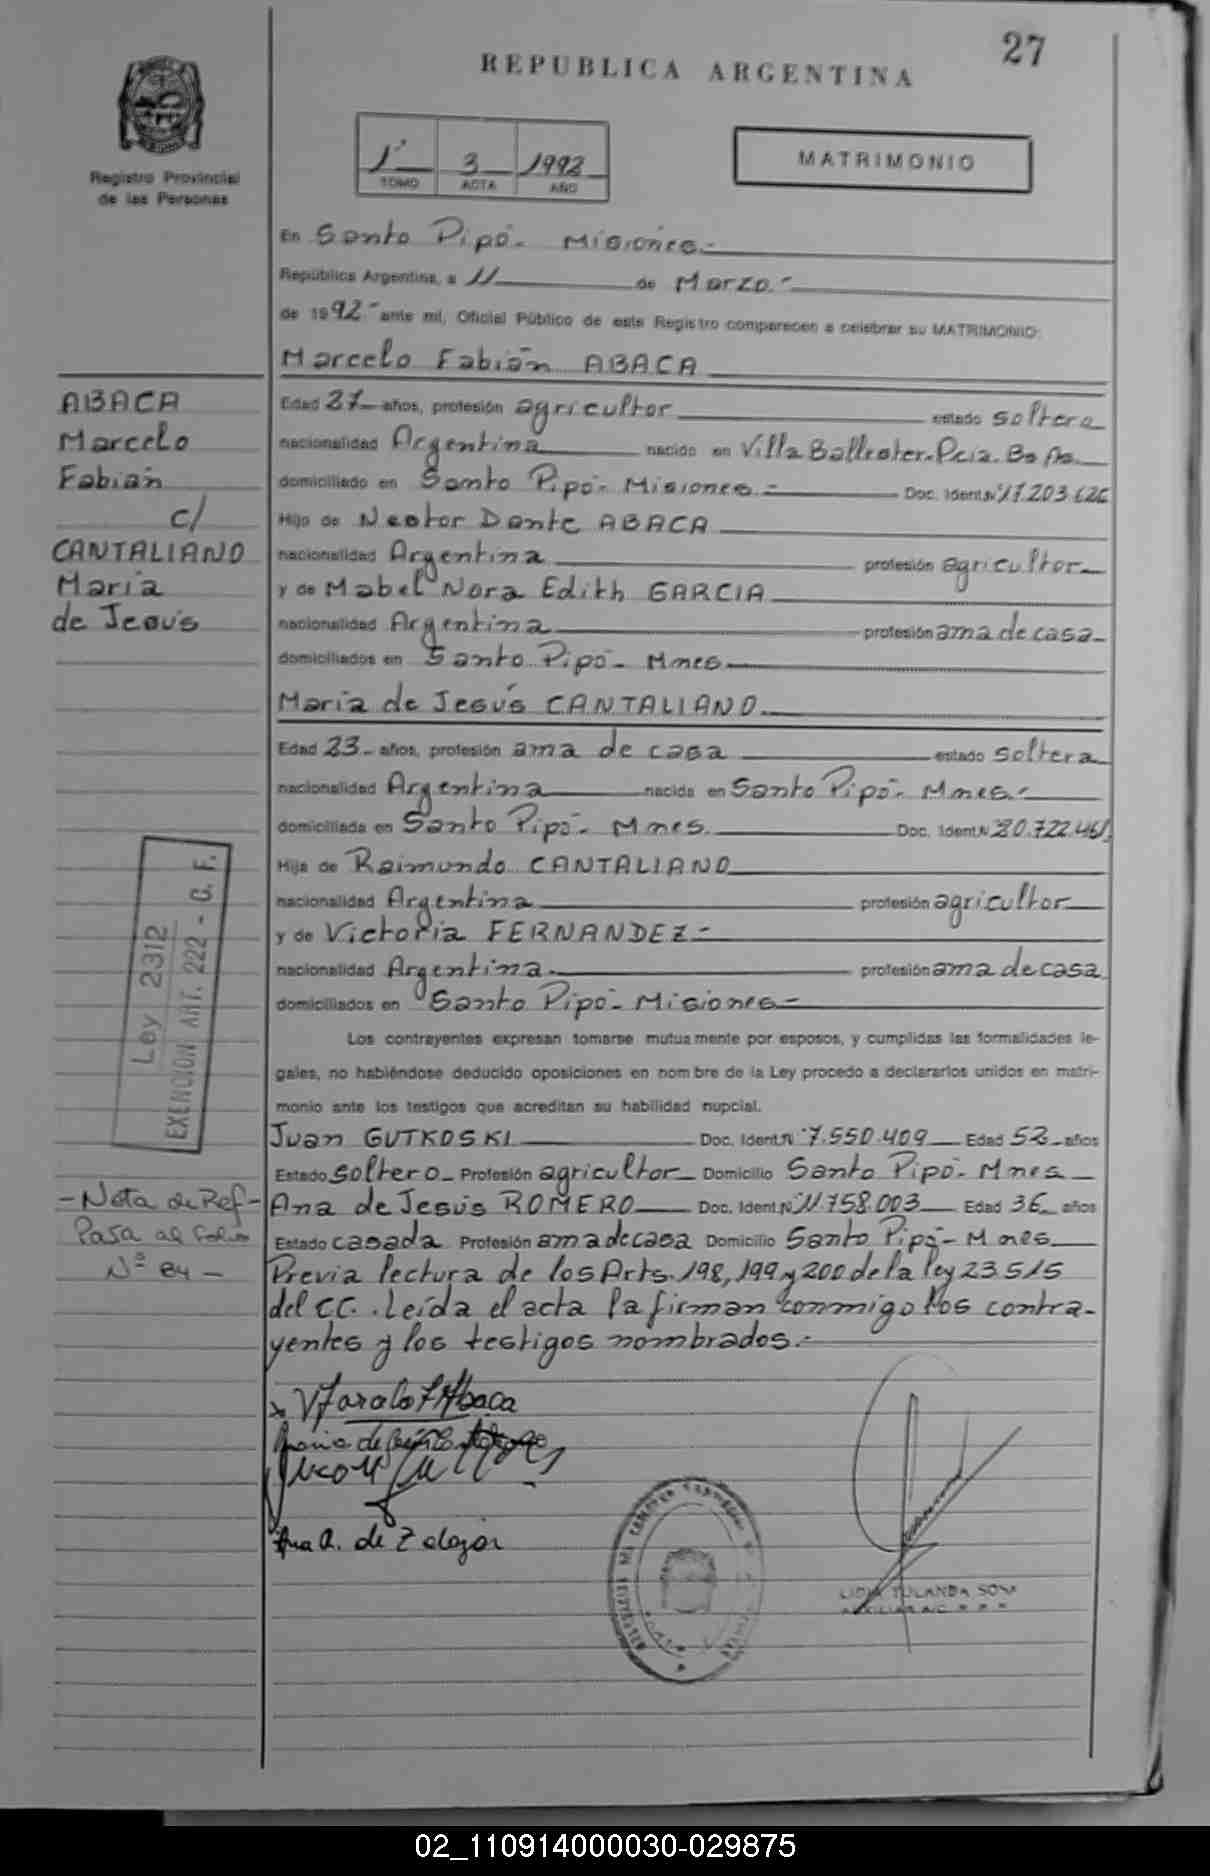 27
REPUBLICA ARGENTINA
Registro Provincial
de las Personas
1° 3 1992
TOMO ACTA AÑO
MATRIMONIO
En Santo Pipó - Misiones.-
República Argentina, a 11 de Marzo.-
de 1992- ante mí, Oficial Público de este Registro comparecen a celebrar su MATRIMONIO:
Marcelo Fabián ABACA
Edad 27- años, profesión agricultor estado soltero
nacionalidad Argentina nacido en Villa Ballester-Pcia. Bs As.
domiciliado en Santo Pipó - Misiones.- Doc. Ident.Nº 17.203.626
Hijo de Nestor Dante ABACA
nacionalidad Argentina profesión agricultor
y de Mabel Nora Edith GARCIA
nacionalidad Argentina profesión ama de casa-
domiciliados en Santo Pipó - Mnes.
María de Jesús CANTALIANO
Edad 23- años, profesión ama de casa estado soltera
nacionalidad Argentina nacida en Santo Pipó - Mnes.-
domiciliada en Santo Pipó - Mnes. Doc. Ident.Nº 20.722.461
Hija de Raimundo CANTALIANO
nacionalidad Argentina profesión agricultor
y de Victoria FERNANDEZ-
nacionalidad Argentina profesión ama de casa
domiciliados en Santo Pipó - Misiones-
Los contrayentes expresan tomarse mutuamente por esposos, y cumplidas las formalidades le-
gales, no habiéndose deducido oposiciones en nombre de la Ley procedo a declararlos unidos en matri-
monio ante los testigos que acreditan su habilidad nupcial.
Juan GUTKOSKI Doc. Ident.Nº 7.550.409 Edad 52- años
Estado soltero- Profesión agricultor- Domicilio Santo Pipó - Mnes
Ana de Jesús ROMERO Doc. Ident.Nº 11.758.003 Edad 36 años
Estado casada Profesión ama de casa Domicilio Santo Pipó - Mnes.
Previa lectura de los Arts. 198, 199 y 200 de la ley 23515
del CC. Leída el acta la firman conmigo los contra-
yentes y los testigos nombrados.-
ABACA
Marcelo
Fabián
c/
CANTALIANO
María
de Jesús
Ley 2312
EXENCION ART. 222 - C. F.
- Nota de Ref -
Pasa al folio
Nº 84 -
Ana R. de
LIDIA YOLANDA
02_110914000030-029875